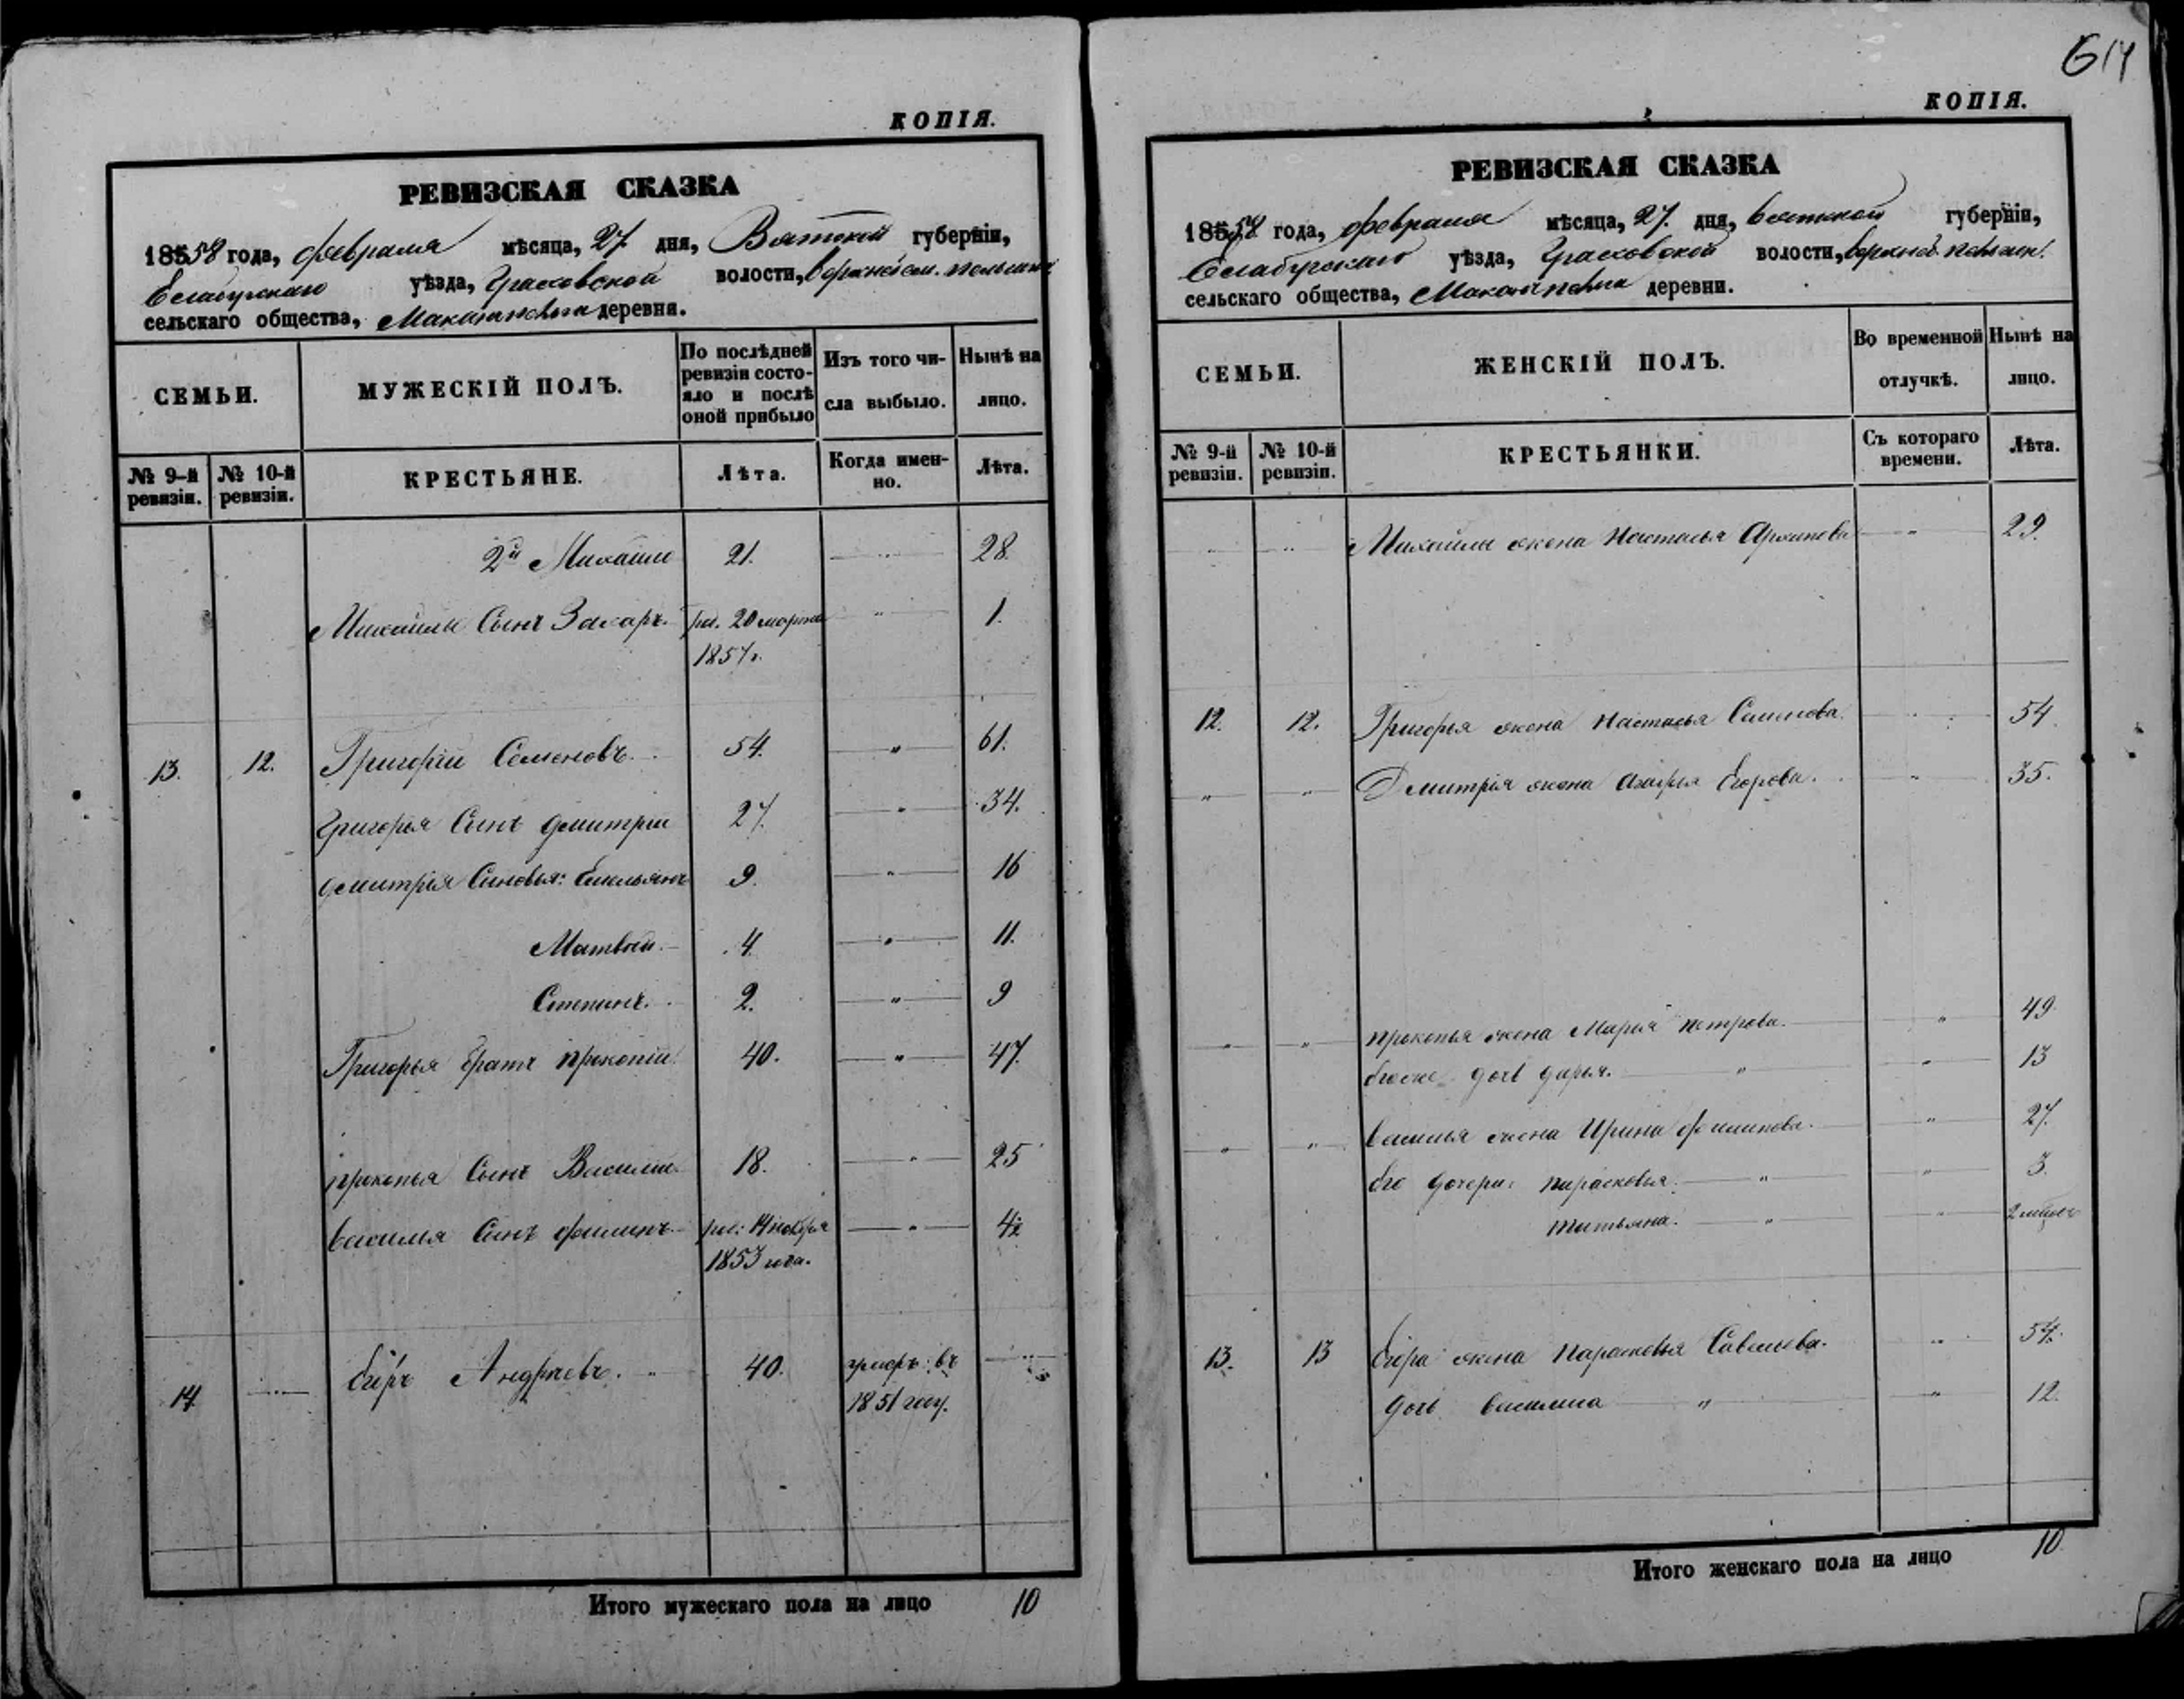 614
КОПІЯ.
РЕВИЗСКАЯ СКАЗКА
18558 года, февраля мѣсяца, 27. дня, Вятской губерніи,
Елабужскаго уѣзда, Граховской волости,
сельскаго общества, деревни.
СЕМЬИ.
МУЖЕСКІЙ ПОЛЪ.
По послѣдней ревизіи состояло и послѣ оной прибыло
Изъ того числа выбыло.
Нынѣ на лицо.
№ 9-й ревизіи.
№ 10-й ревизіи.
КРЕСТЬЯНЕ.
Лѣта.
Когда именно.
Лѣта.
2й Михайло 21. 28.
Михайлы Сынъ Захаръ. 20 марта 1.
1857г.
13. 12. Григорій Семеновъ. 54. " 61.
Григорья Сынъ Дмитрій 27. " 34.
Дмитрія Сыновья: Емельянъ 9. " 16
Матвей. 4. " 11.
Степанъ. 2. " 9
Григорья братъ Прокопій 40. " 47.
Прокопья Сынъ Василій. 18. " 25
Василья Сынъ Филипъ. "
1853 года.
14. Егоръ Андреевъ. 40. въ
1851 году.
Итого мужескаго пола на лицо 10
КОПІЯ.
РЕВИЗСКАЯ СКАЗКА
18558 года, февраля мѣсяца, 27. дня, Вятской губерніи,
Елабужскаго уѣзда, Граховской волости,
сельскаго общества, деревни.
СЕМЬИ.
ЖЕНСКІЙ ПОЛЪ.
Во временной отлучкѣ.
Нынѣ на лицо.
№ 9-й ревизіи.
№ 10-й ревизіи.
КРЕСТЬЯНКИ.
Съ котораго времени.
Лѣта.
" " Михайлы жена Настасья Архипова " 29.
12. 12. Григорья жена Настасья Семенова. 54.
" " Дмитрія жена Егорова. " 35.
" " Прокопья жена Марья Петрова. " 49.
дочь Дарья. " " 13
" " Василья жена Ирина Филипова. " 27.
Его дочери: Парасковья. " " 3.
Татьяна. " "
13. 13 Егора жена Парасковья Савельева. "
дочь Василиса " " 12.
Итого женскаго пола на лицо 10